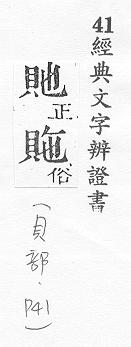 41經典文字辨證書
貤正
貤俗
(貝部.P41)